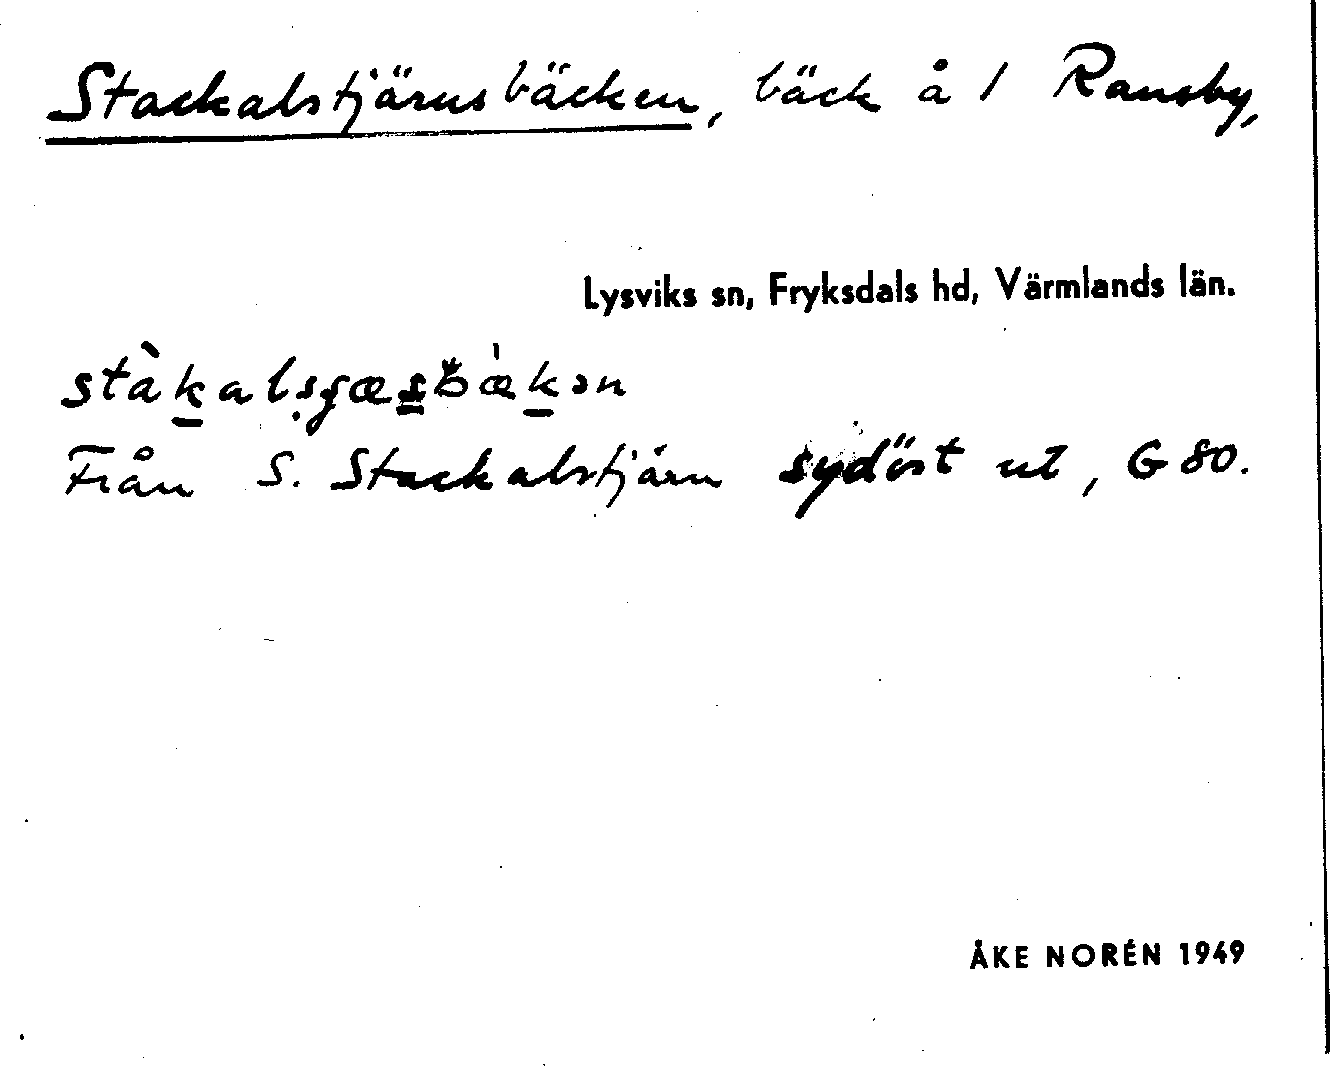 Stackalstjärnsbäcken, bäck å 1 Ransby,
Lysviks sn, Fryksdals hd, Värmlands län.
Från S. Stackalstjärn sydöst ut, G 80.
ÅKE NORÉN 1949